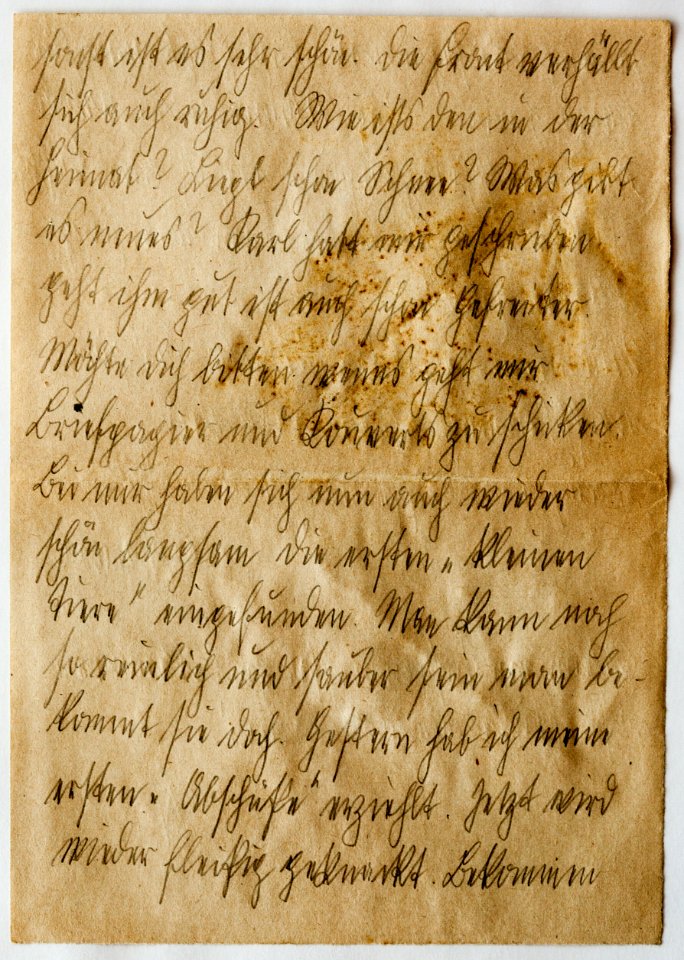 sonst ist es sehr schön. Die Front verhällt
sich auch ruhig. Wie ists den in der
Heimat? Liegt schon Schnee? Was gibt
es neues? Karl hatt mir geschrieben
geht ihm gut ist auch schon Gefreiter.
Möchte dich bitten wenns geht mir
Briefpapier und Kouverts zu schicken.
Bei mir haben sich nun auch wieder
schön langsam die ersten „kleinen
Tiere" eingefunden. Man kann noch
so reinlich und sauber sein man be-
kommt sie doch. Gestern hab ich meine
ersten „Abschüße" erziehlt. Jetzt wird
wieder fleißig geknackt. Bekommen